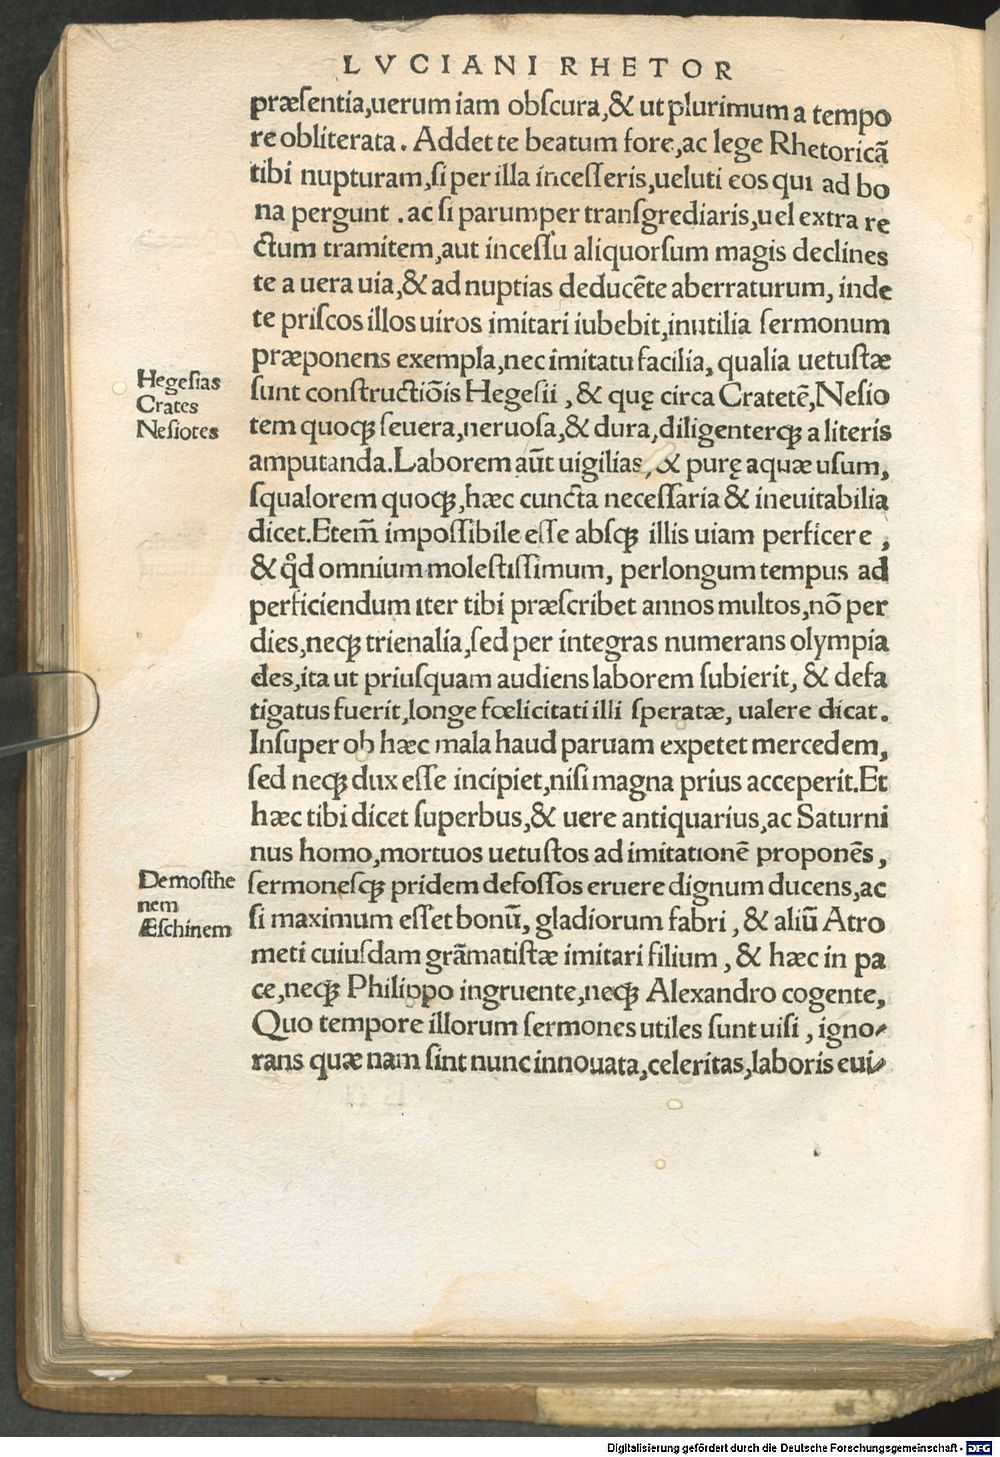 LVCIANI RHETOR
præſentia,uerum iam obſcura,& ut plurimum a tempo
re obliterata. Addet te beatum fore,ac lege Rhetoricã
tibi nupturam,ſi per illa inceſſeris,ueluti eos qui ad bo
na pergunt .ac ſi parumper tranſgrediaris,uel extra re
ctum tramitem,aut inceſſu aliquorſum magis declines
te a uera uia,& ad nuptias deducẽte aberraturum, inde
te priſcos illos uiros imitari iubebit,inutilia ſermonum
præponens exempla,nec imitatu facilia, qualia uetuſtæ
Hegeſias
Crates
Neſiotes
ſunt conſtructiõis Hegeſii , & quę circa Cratetẽ,Neſio
tem quoqꝫ ſeuera,neruoſa,& dura,diligenterqꝫ a literis
amputanda.Laborem aũt uigilias,& purę aquæ uſum,
ſqualorem quoqꝫ,hæc cuncta neceſſaria & ineuitabilia
dicet.Etem̃ impoſſibile eſſe abſqꝫ illis uiam perficere ,
& qd̓ omnium moleſtiſſimum, perlongum tempus ad
perficiendum iter tibi præſcribet annos multos,nõ per
dies,neqꝫ trienalia,ſed per integras numerans olympia
des,ita ut priuſquam audiens laborem ſubierit, & defa
tigatus fuerit,longe fœlicitati illi ſperatæ, ualere dicat.
Inſuper ob hæc mala haud paruam expetet mercedem,
ſed neqꝫ dux eſſe incipiet,niſi magna prius acceperit.Et
hæc tibi dicet ſuperbus,& uere antiquarius,ac Saturni
nus homo,mortuos uetuſtos ad imitationẽ proponẽs ,
Demoſthe
nem
Æſchinem
ſermoneſqꝫ pridem defoſſos eruere dignum ducens,ac
ſi maximum eſſet bonũ, gladiorum fabri , & aliũ Atro
meti cuiuſdam grãmatiſtæ imitari filium , & hæc in pa
ce,neqꝫ Philippo ingruente,neqꝫ Alexandro cogente,
Quo tempore illorum ſermones utiles ſunt uiſi , igno-
rans quæ nam ſint nunc innouata,celeritas,laboris eui-
Digitalisierung gefördert durch die Deutsche Forschungsgemeinschaft - DFG